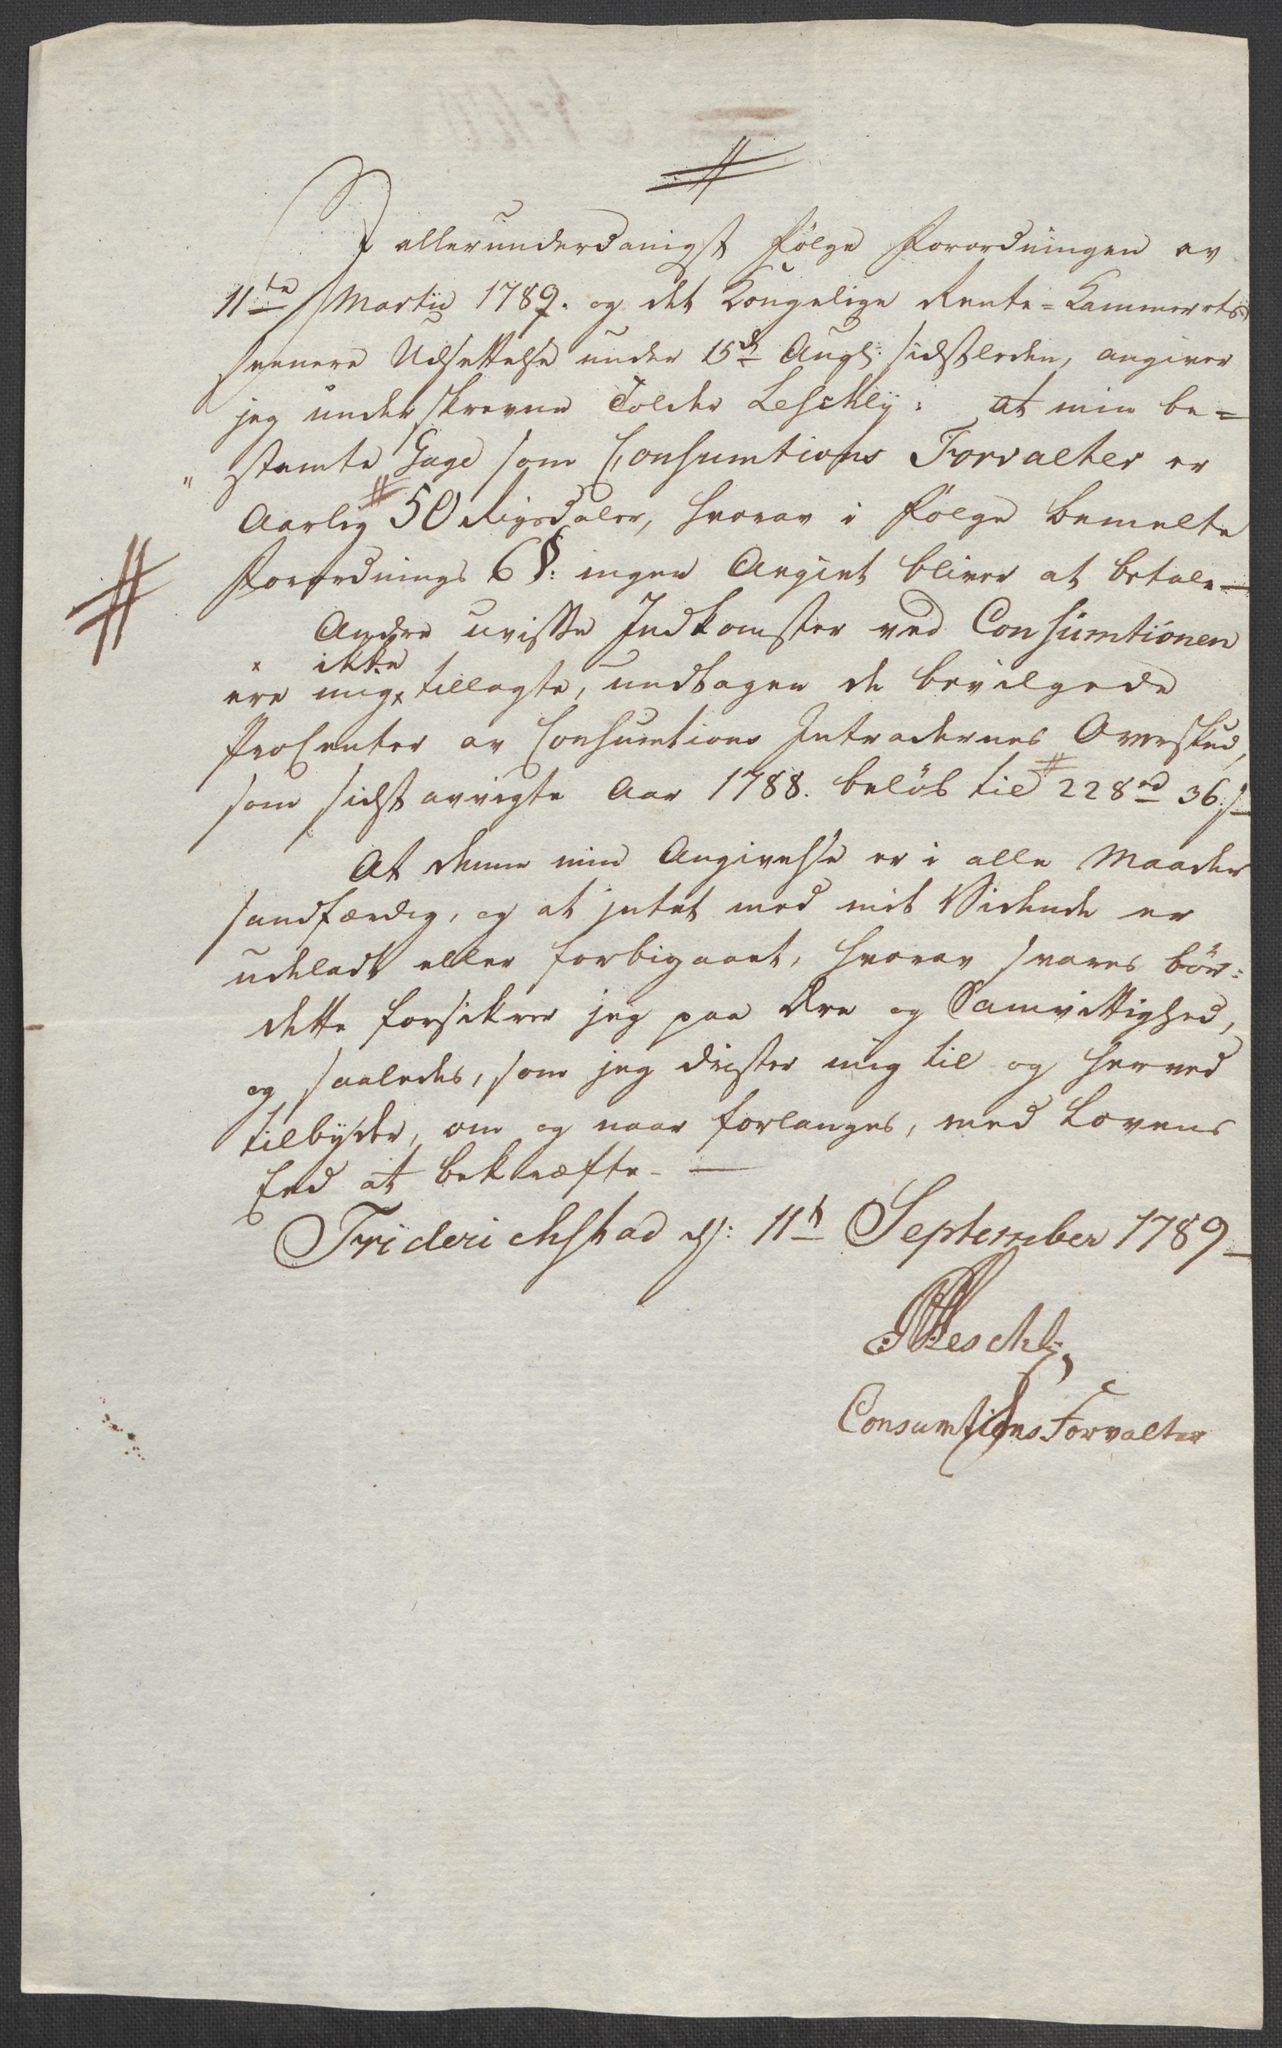 I allerunderdanigst følge Forordningen av
11te Martii 1789. og det Kongelige Rente-Kammerets
seenere Udsettelse under 15de Augt: sidstleden, angiver
jeg underskrevne Tolder Leschly: at min be-
stemte Gage som Consumtions Forvalter er
Aarlig 50 Rigsdaler, hvorav i følge bemelte
Forordnings 6 §: ingen Avgivt bliver at betale.
Andre uvisse Indkomster ved Consumtionen
ikke
ere mig tillagte, undtagen de bevilgede
ProCenter av Consumtions Intradernes Overskud,
som sidst avvigte Aar 1788. beløb til 228rd 36 s
At denne min Angivelse er i alle Maader
sandfærdig, og at intet med mit Vidende er
udeladt eller forbigaaet, hvorav svares bör:
dette forsikrer jeg paa Ære og Samvittighed,
og saaledes, som jeg drister mig til og herved
tilbyder, om og naar forlanges, med Lovens
Eed at bekræfte.
Friderichstad d: 11t September 1789
Leschly,
Consumtions Forvalter